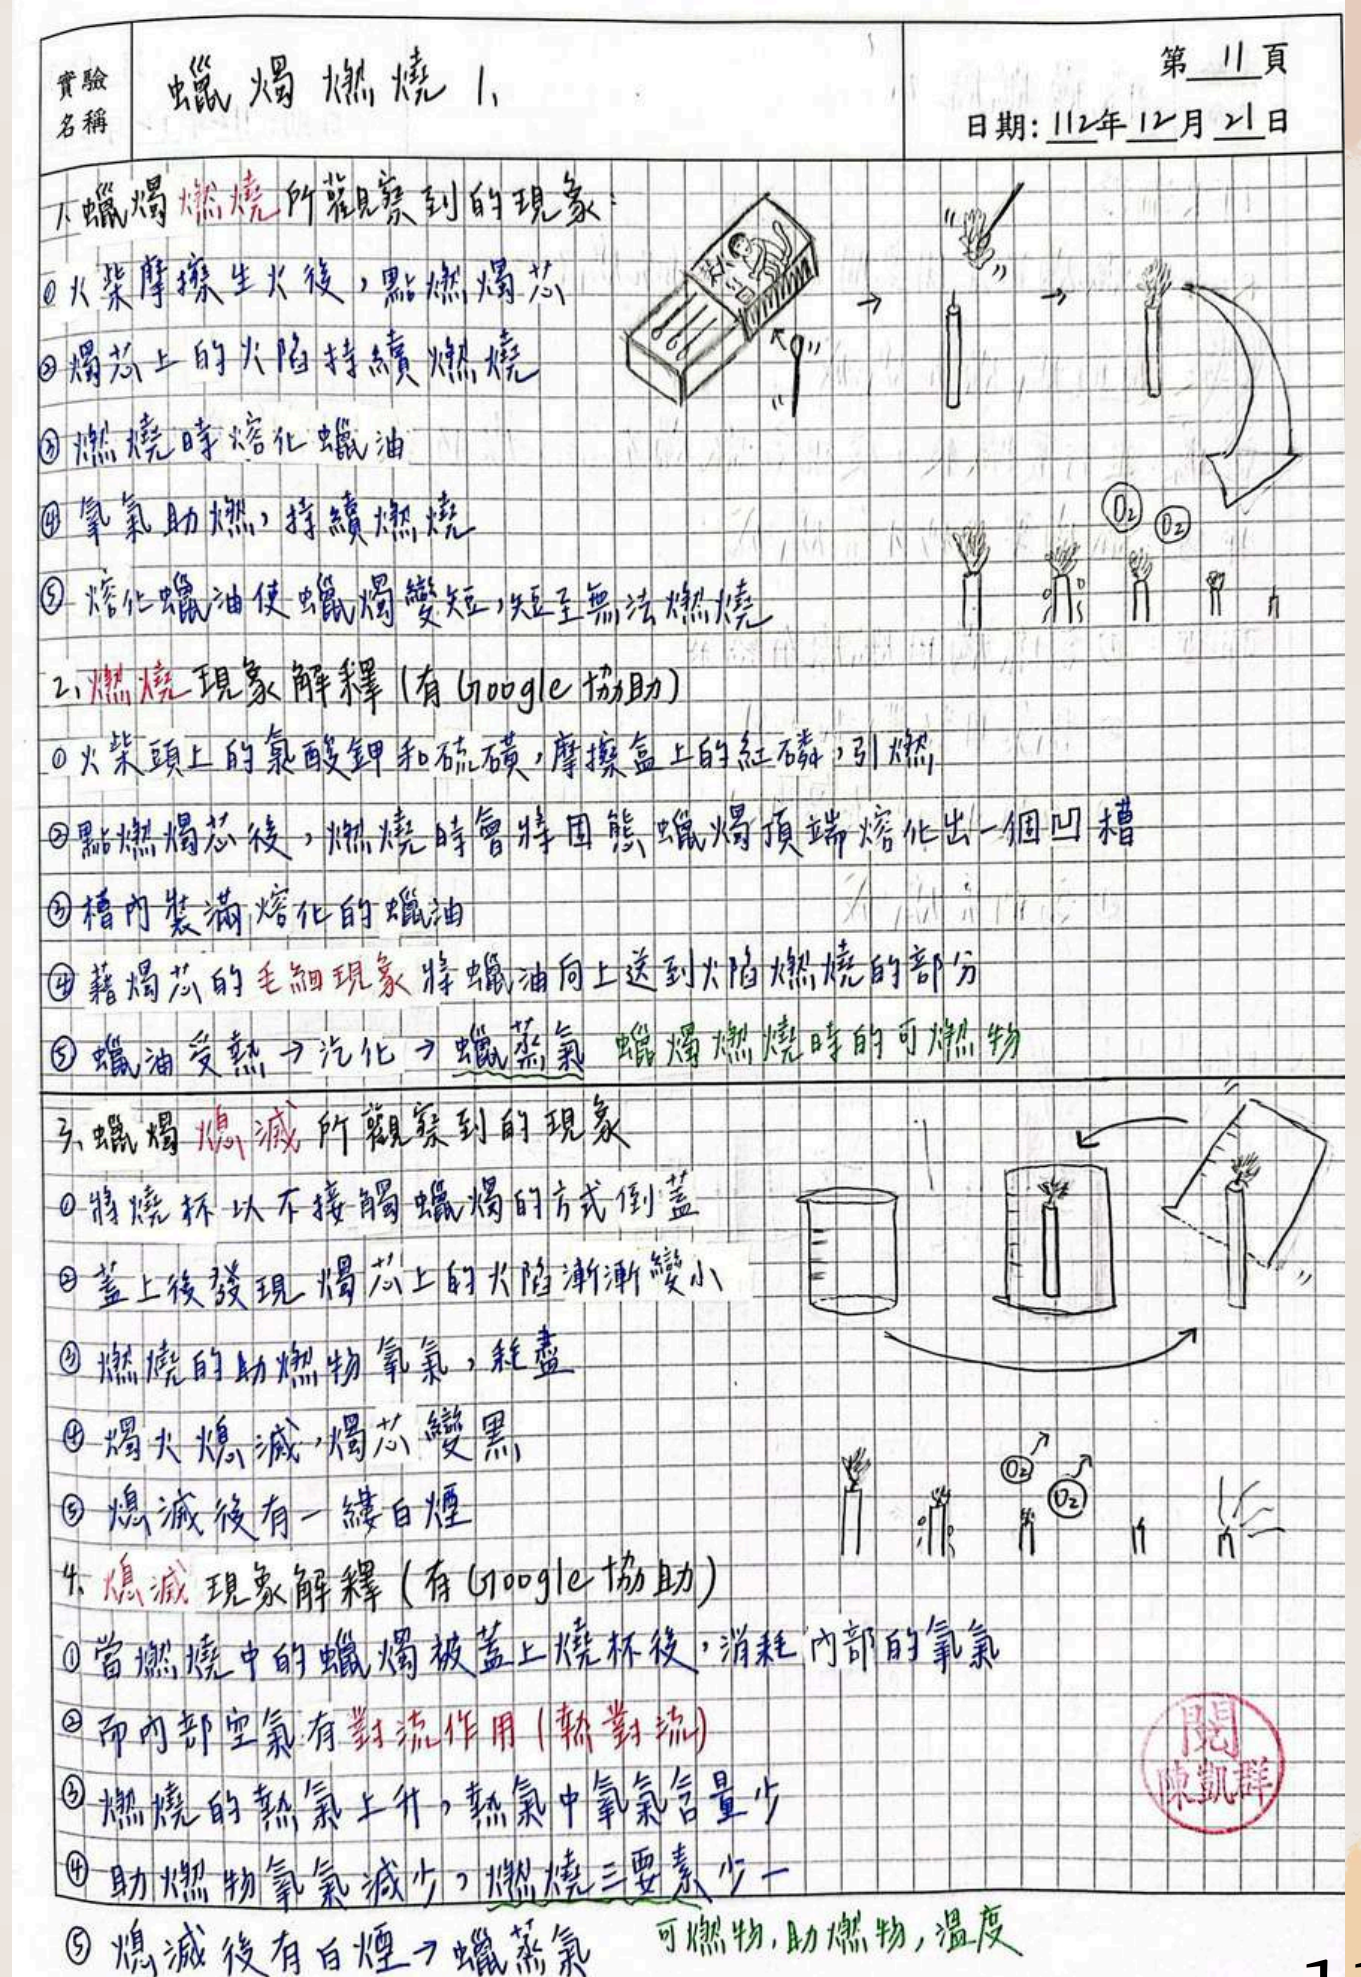 實驗名稱 蠟燭燃燒 1、
第 11 頁
日期: 112年 12月 21日
1、蠟燭燃燒所觀察到的現象:
① 火柴摩擦生火後，點燃燭芯
② 燭芯上的火陷持續燃燒
③ 燃燒時熔化蠟油
④ 氧氣助燃，持續燃燒
O₂ O₂
⑤ 熔化蠟油使蠟燭變短，短至無法燃燒
2、燃燒現象解釋(有Google協助)
① 火柴頭上的氯酸鉀和硫磺，摩擦盒上的紅磷，引燃
② 點燃燭芯後，燃燒時會將固態蠟燭頂端熔化出一個凹槽
③ 槽內裝滿熔化的蠟油
④ 藉燭芯的毛細現象將蠟油向上送到火陷燃燒的部分
⑤ 蠟油受熱→汽化→蠟蒸氣 蠟燭燃燒時的可燃物
3、蠟燭熄滅所觀察到的現象
① 將燒杯以不接觸蠟燭的方式倒蓋
② 蓋上後發現燭芯上的火陷漸漸變小
③ 燃燒的助燃物氧氣，耗盡
④ 燭火熄滅，燭芯變黑
O₂ O₂
⑤ 熄滅後有一縷白煙
4、熄滅現象解釋(有Google協助)
① 當燃燒中的蠟燭被蓋上燒杯後，消耗內部的氧氣
② 而內部空氣有對流作用(熱對流)
③ 燃燒的熱氣上升，熱氣中氧氣含量少
④ 助燃物氧氣減少，燃燒三要素少一
⑤ 熄滅後有白煙→蠟蒸氣 可燃物,助燃物,溫度
閱
陳凱群